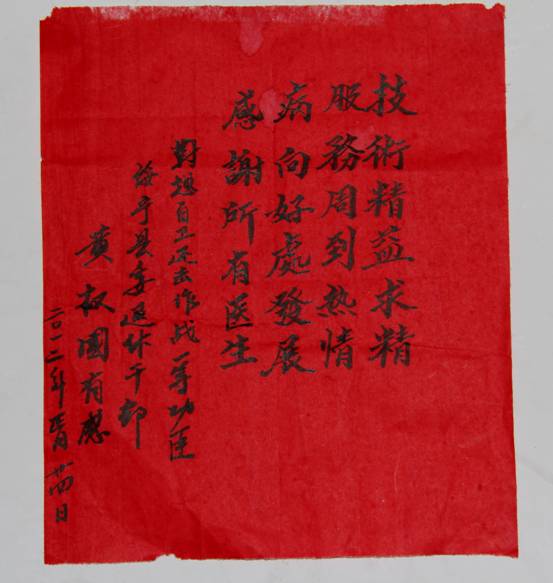 技術精益求精
服務周到热情
病向好處發展
感謝所有医生
對越自卫还击作战一等功臣
阜宁县委退休干部
黄 国有感
二〇一二年 月廿四日